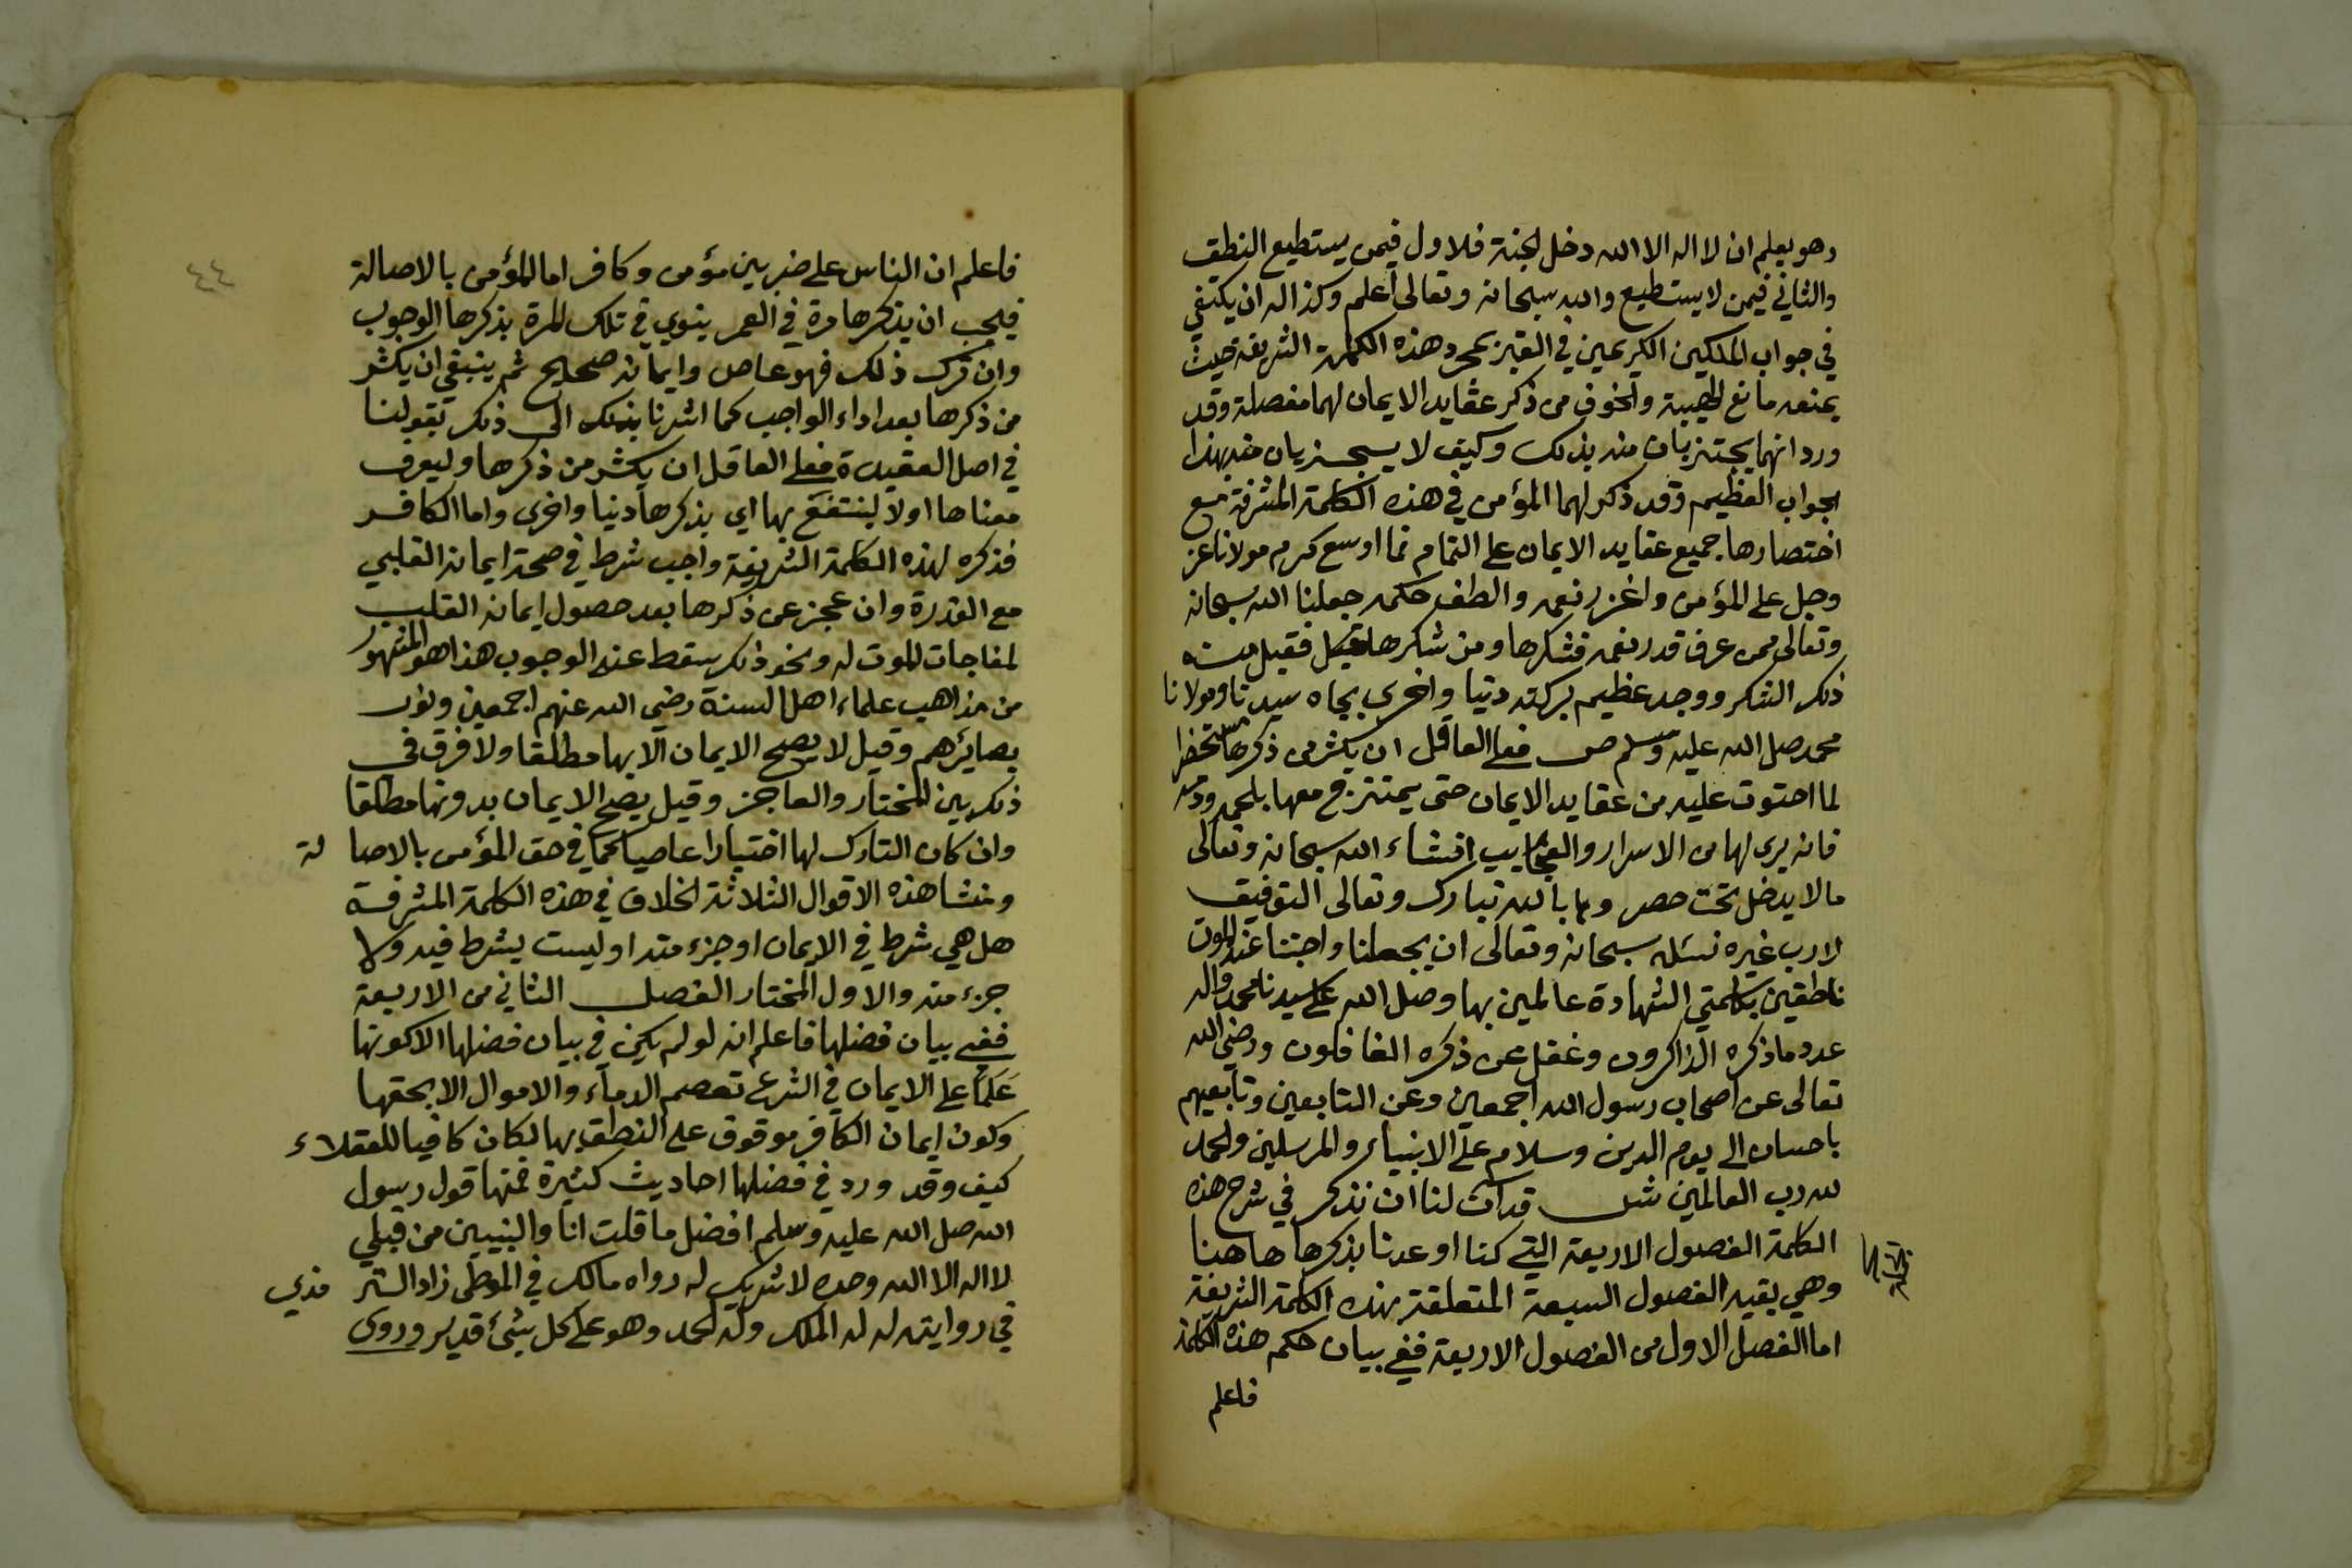 وهو يعلم ان لا اله الا الله دخل الجنة فالاول فيمن يستطيع النطق
والثاني فيمن لا يستطيع والله سبحانه وتعالى أعلم وكذا له ان يكتفي
في جواب الملكين الكريمين في القبر بمجرد هذه الكلمة الشريفة حيث
يمنعه مانع الهيبة والخوف من ذكر عقايد الايمان لهما مفصلة وقد
ورد انهما يجتزيان منه بذلك وكيف لا يجتزيان منه بهذا
الجواب العظيم وقد ذكر لهما المؤمن في هذه الكلمة المشرفة مع
اختصارها جميع عقايد الايمان على التمام فما اوسع كرم مولانا عز
وجل على المؤمن واغزر نعمه والطف حكمه جعلنا الله سبحانه
وتعالى ممن عرف قدر نعمه فشكرها ومن شكرها فقبل منه
ذلك الشكر ووجد عظيم بركته دنيا واخرى بجاه سيدنا ومولانا
محمد صلى الله عليه وسلم ص فعلى العاقل ان يكثر من ذكرها مستحضرا
لما احتوت عليه من عقايد الايمان حتى يمتزج معها بلحمه ودمه
فانه يرى لها من الاسرار والعجايب انشاء الله سبحانه وتعالى
ما لا يدخل تحت حصر وبالله تبارك وتعالى التوفيق
لا رب غيره نسئله سبحانه وتعالى ان يجعلنا واحبتنا عند الموت
ناطقين بكلمتي الشهادة عالمين بها وصلى الله على سيدنا محمد واله
عدد ما ذكره الذاكرون وغفل عن ذكره الغافلون ورضي الله
تعالى عن اصحاب رسول الله اجمعين وعن التابعين وتابعيهم
باحسان الى يوم الدين وسلام على الانبياء والمرسلين والحمد
لله رب العالمين ش قد آن لنا ان نذكر في شرح هذه
الكلمة الفصول الاربعة التي كنا اوعدنا بذكرها هاهنا
وهي بقيه الفصول السبعة المتعلقة بهذه الكلمة الشريفة
اما الفصل الاول من الفصول الاربعة ففي بيان حكم هذه الكلمة
فاعلم
٤٤
فاعلم ان الناس على ضربين مؤمن وكافر اما المؤمن بالاصالة
فيجب ان يذكرها مرة في العمر ينوي في تلك المرة بذكرها الوجوب
وان ترك ذلك فهو عاص وايمانه صحيح ثم ينبغي ان يكثر
من ذكرها بعد اداء الواجب كما اشرنا بذلك الى ذلك بقولنا
في اصل العقيدة فعلى العاقل ان يكثر من ذكرها وليعرف
معناها اولا لينتفع بها اي بذكرها دنيا واخرى واما الكافر
فذكره لهذه الكلمة الشريفة واجب شرط في صحة ايمانه القلبي
مع القدرة وان عجز عن ذكرها بعد حصول ايمانه القلب
لمفاجات الموت له ونحو ذلك سقط عنه الوجوب هذا هو المشهور
من مذاهب علماء اهل السنة رضي الله عنهم اجمعين ونور
بصايرهم وقيل لا يصح الايمان الا بها مطلقا ولا فرق في
ذلك بين المختار والعاجز وقيل يصح الايمان بدونها مطلقا
وان كان التارك لها اختيارا عاصيا كما في حق المؤمن بالاصا لة
ومنشا هذه الاقوال الثلاثة الخلاف في هذه الكلمة المشرفة
هل هي شرط في الايمان او جزء منه او ليست بشرط فيه ولا
جزء منه والاول المختار الفصل الثاني من الاربعة
ففي بيان فضلها فاعلم انه لو لم يكن في بيان فضلها الا كونها
عَلَمًا على الايمان في الشرع تعصم الدماء والاموال الا بحقها
وكون ايمان الكافر موقوف على النطق بها لكان كافيا للعقلاء
كيف وقد ورد في فضلها احاديث كثيرة فمنها قول رسول
الله صلى الله عليه وسلم افضل ما قلت انا والنبيين من قبلي
لا اله الا الله وحده لا شريك له رواه مالك في الموطى زاد التر مذي
في روايته له له الملك وله الحمد وهو على كل شيء قدير وروى